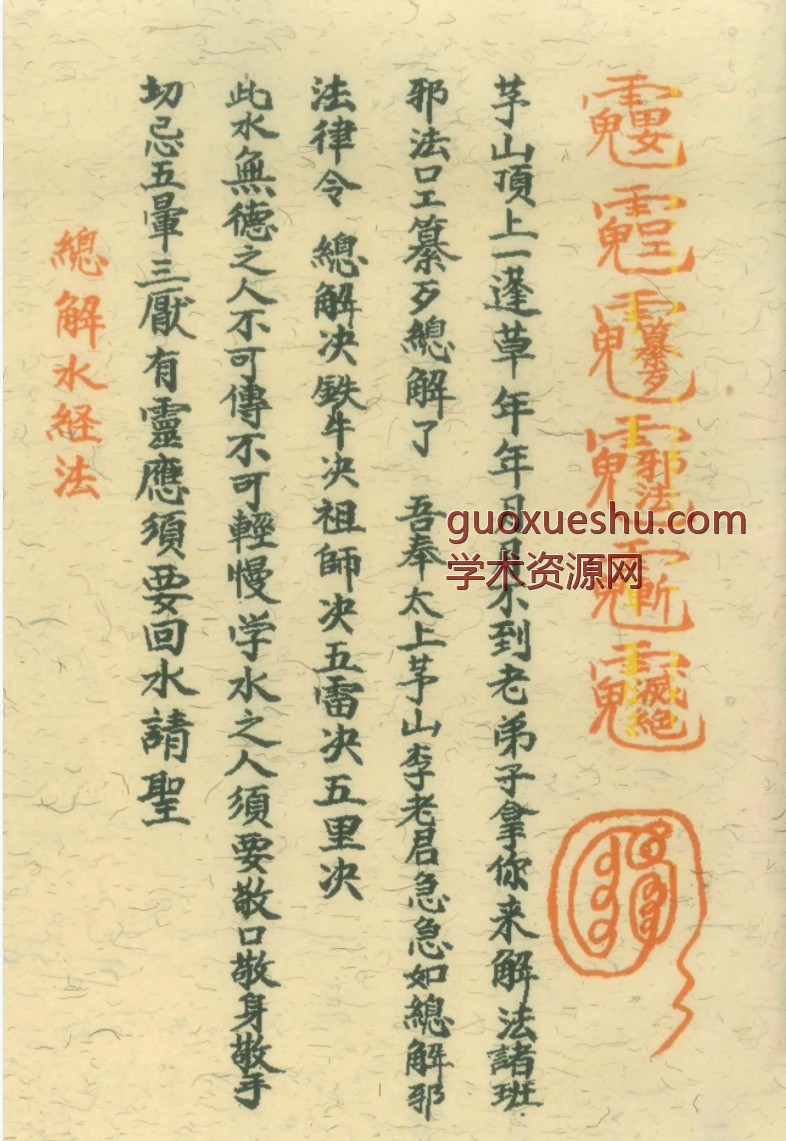 田女
口工
纂歹
邪法
斬
滅絕
芧山頂上一逢草年年日月不到老弟子拿你来解法諸班
邪法口工纂歹總解了 吾奉太上芧山李老君急急如總解邪
法律令 總解决鉄牛决祖師决五雷决五里决
此水無德之人不可傳不可輕慢学水之人須要敬口敬身敬手
切忌五暈三厭有靈應須要回水請聖
總解水経法
guoxueshu.com
学术资源网